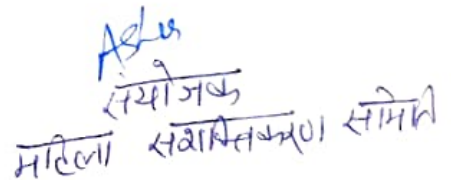 संयोजक
महिला सशक्तिकरण समिति